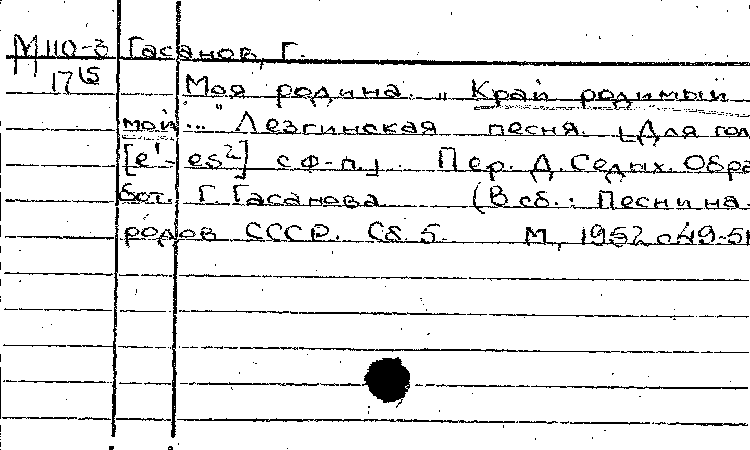 М 110-3 Гасанов, Г.
1715 Моя родина. „Край родимый
мой..." Лезгинская песня. [Для гол
[e¹-es²] с ф-п.]. Пер. Д. Седых. Обра
бот. Г. Гасанова (В сб.: Песни на-
родов СССР. Сб. 5. М, 1952 с 49-51